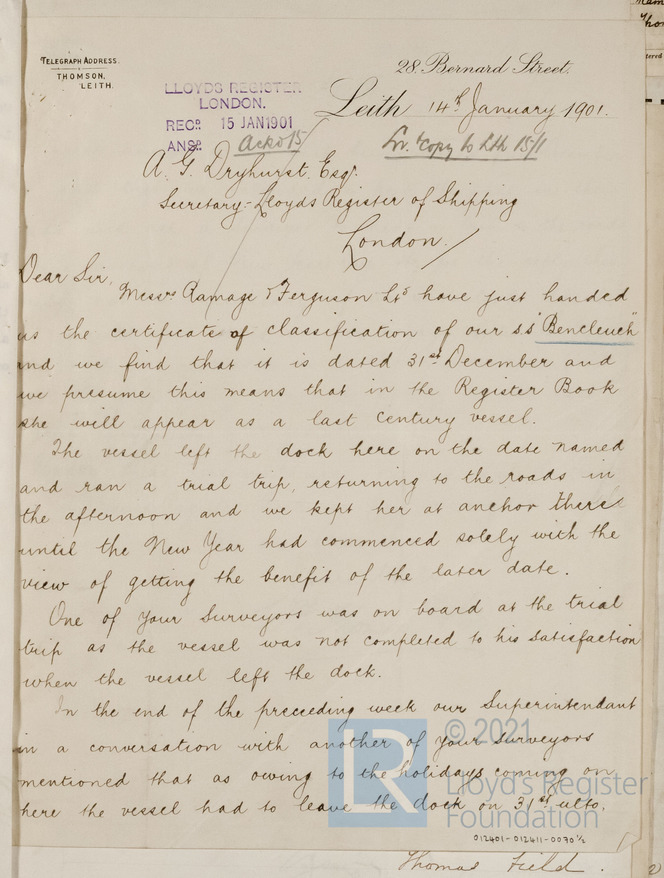 TELEGRAPH ADDRESS.
THOMSON,
LEITH.
28. Bernard Street.
Leith 14th January 1901.
LLOYDS REGISTER
LONDON.
RECD. 15 JAN 1901
ANSD. Ackd 15
Lr. Copy to Lth 15/1
A. G. Dryhurst Esqr.
Secretary - Lloyds Register of Shipping
London.
Dear Sir,
Messrs Ramage & Ferguson Ltd have just handed
us the certificate of classification of our s.s "Bencleuch"
and we find that it is dated 31st December and
we presume this means that in the Register Book
she will appear as a last century vessel.
The vessel left the dock here on the date named
and ran a trial trip, returning to the roads in
the afternoon and we kept her at anchor there
until the New Year had commenced solely with the
view of getting the benefit of the later date.
One of your Surveyors was on board at the trial
trip as the vessel was not completed to his satisfaction
when the vessel left the dock.
In the end of the preceeding week our Superintendant
in a conversation with another of your Surveyors
mentioned that as owing to the holidays coming on
here the vessel had to leave the dock on 31st ulto.
© 2021
LR
Lloyd's Register
Foundation
012401-012411-0070 1/2
Thomas Field.